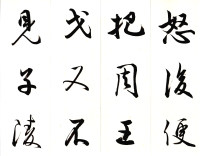 怒後便
把周王
戈又不
見子陵